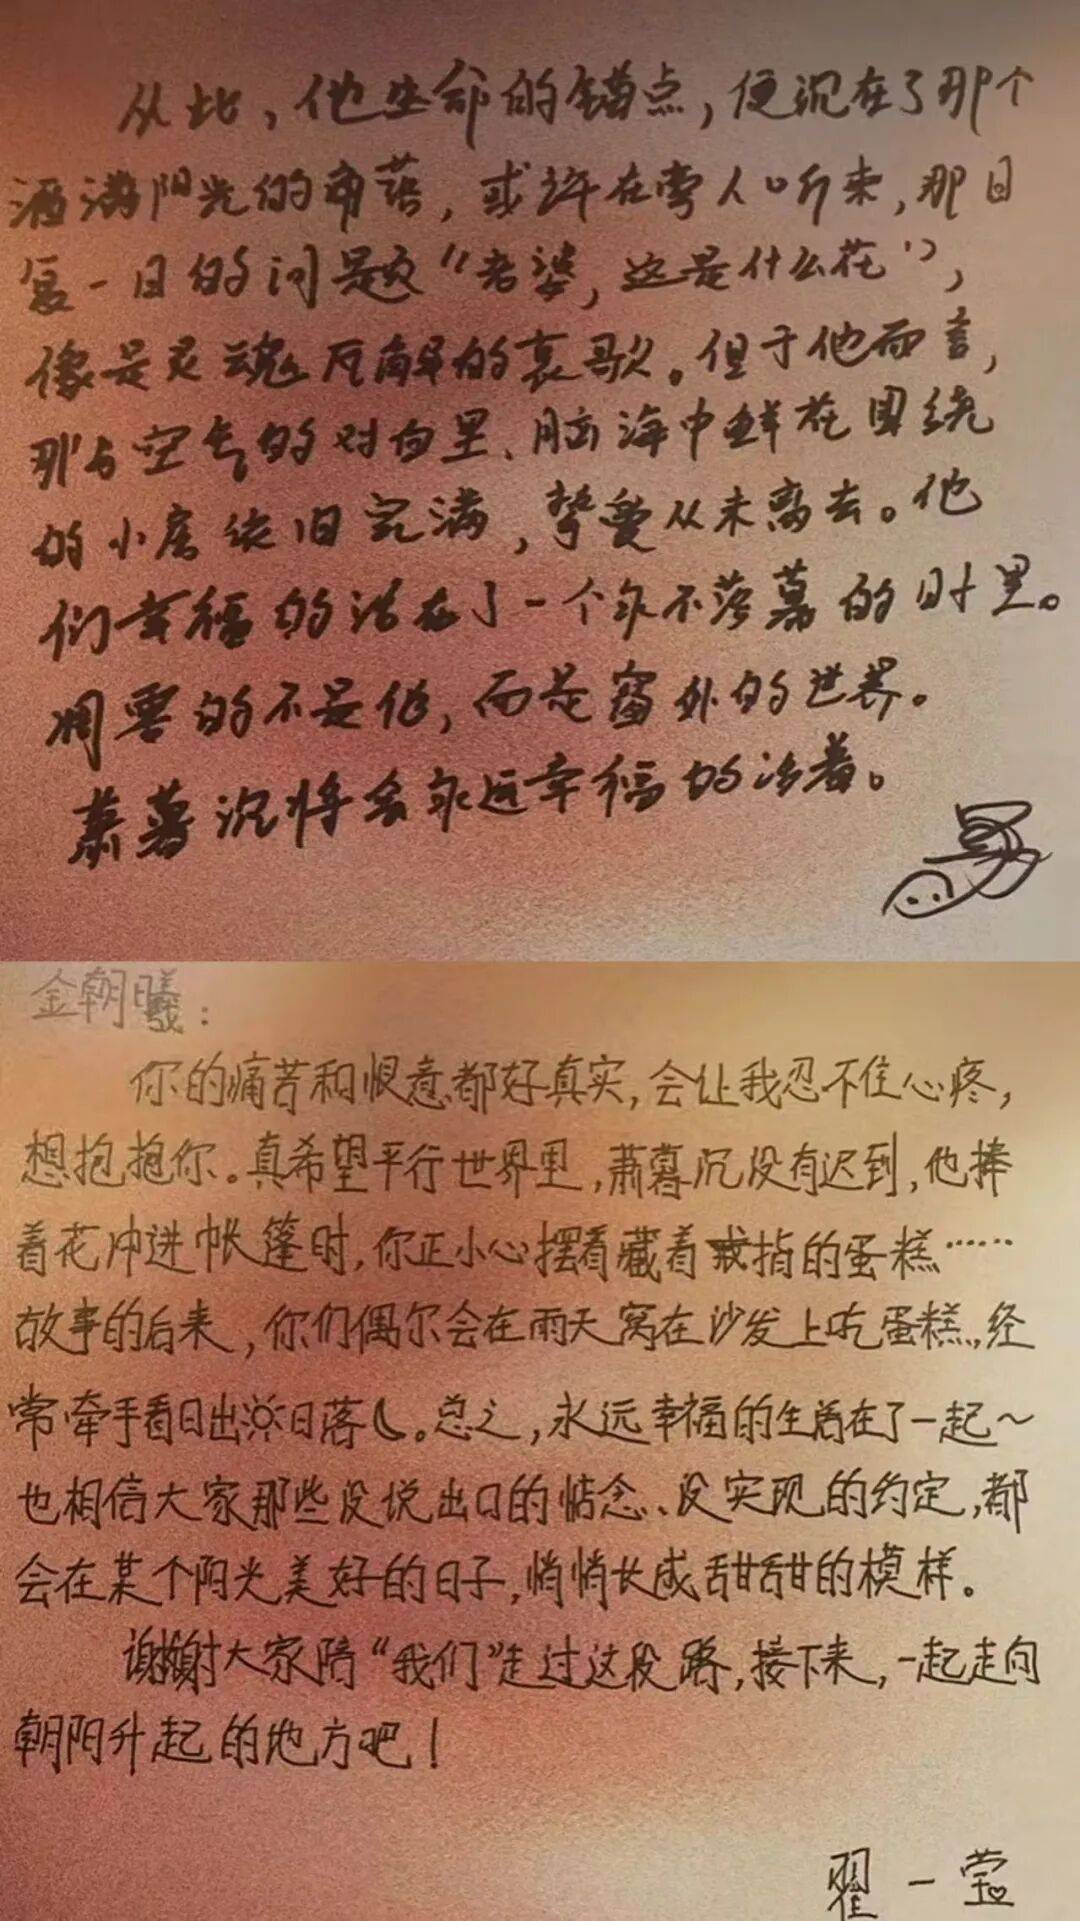 从此，他生命的锚点，便沉在了那个
洒满阳光的角落，或许在旁人听来，那日
复一日的问题"老婆，这是什么花"，
像是灵魂瓦解的哀歌。但于他而言，
那与空气的对白里、脑海中鲜花围绕
的小屋依旧完满，挚爱从未离去。他
们幸福的活在了一个永不落幕的时里。
凋零的不是他，而是窗外的世界。
萧暮沉将会永远幸福的活着。
金朝曦：
你的痛苦和恨意都好真实，会让我忍不住心疼，
想抱抱你。真希望平行世界里，萧暮沉没有迟到，他捧
着花冲进帐篷时，你正小心摆着藏着戒指的蛋糕……
故事的后来，你们偶尔会在雨天窝在沙发上吃蛋糕…经
常牵手看日出日落。总之，永远幸福的生活在了一起～
也相信大家那些没说出口的惦念、没实现的约定，都
会在某个阳光美好的日子，悄悄长成甜甜的模样。
谢谢大家陪"我们"走过这段路，接下来，一起走向
朝阳升起的地方吧！
翟一莹